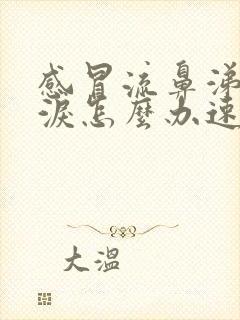 感冒流鼻涕
淚怎麼办速
大溫